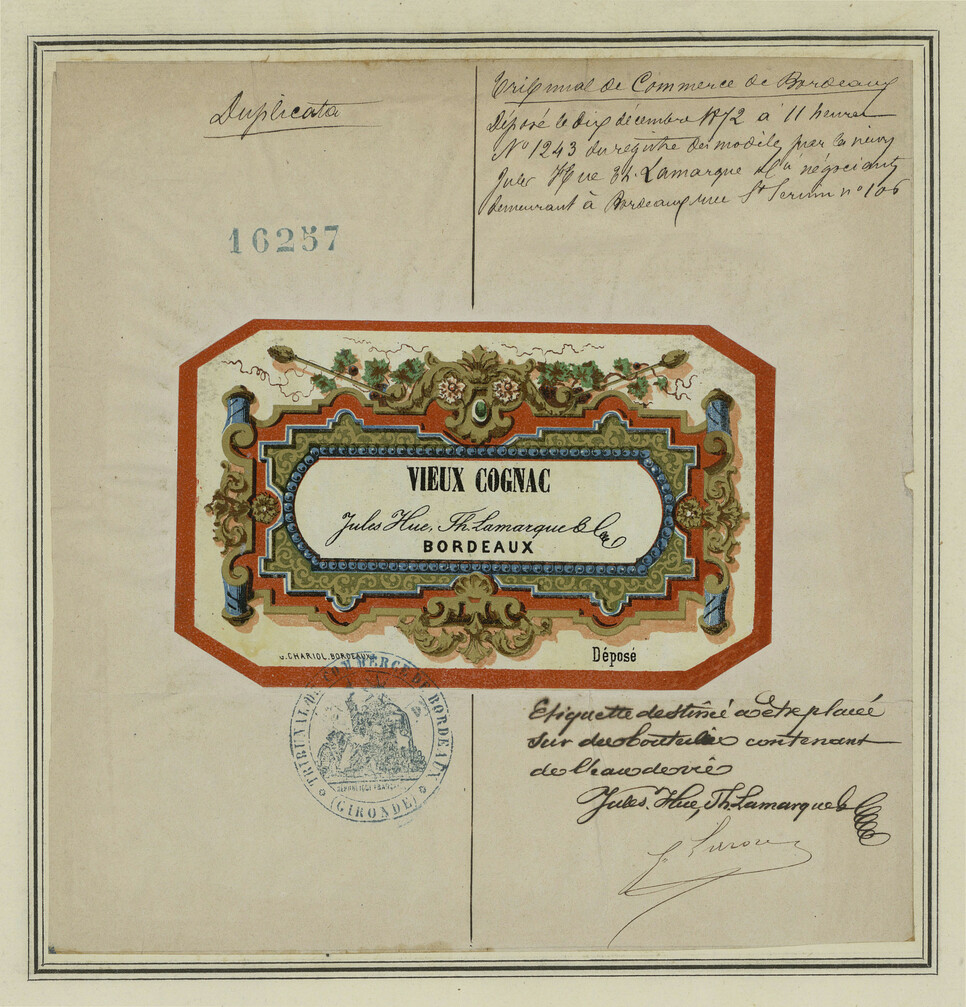 Duplicata
Tribunal de Commerce de Bordeaux
Déposé le dix décembre 1872 à 11 heures
No 1243 du registre des modèles par les sieurs
Jules Hue Th. Lamarque & Cie négociants
demeurant à Bordeaux rue St Seurin no 106
16257
VIEUX COGNAC
Jules Hue, Th. Lamarque & Cie
BORDEAUX
G. CHARIOL. BORDEAUX
Déposé
TRIBUNAL DE COMMERCE DE BORDEAUX
RÉPUBLIQUE FRANÇAISE
(GIRONDE)
Etiquette destiné a etre placée
sur des bouteille contenant
de l'eau de vie
Jules. Hue, Th. Lamarque &